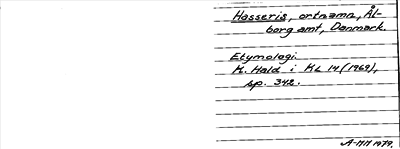 Hasseris, ortnamn, Ål-
borg amt, Danmark.
Etymologi.
K. Hald i KL 14 (1969),
sp. 342.
A-MM 1979.